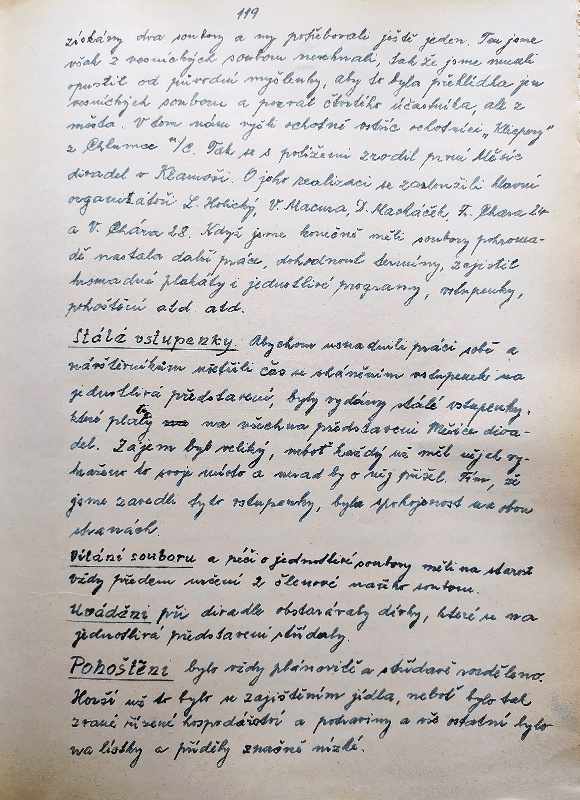 119
získány dva soubory a my potřebovali ještě jeden. Ten jsme
však z vesnických souborů nesehnali, tak že jsme museli
opustit od původní myšlenky, aby to byla přehlídka jen
vesnických souborů a pozvat čtvrtého účastníka, ale z
města. V tom nám vyšli ochotně vstříc ochotníci „Klicpery"
z Chlumce n/C. Tak se s potížemi zrodil první Měsíc
divadel v Klamoši. O jeho realizaci se zasloužili hlavní
organizátoři L. Holický, V. Macura, D. Macháček, Fr. Chára 24
a V. Chára 28. Když jsme konečně měli soubory pohroma-
dě nastala další práce, dohodnout termíny, zajistit
hromadné plakáty i jednotlivé programy, vstupenky,
pohoštění atd. atd.
Stálé vstupenky. Abychom usnadnili práci sobě a
návštěvníkům ušetřili čas se sháněním vstupenek na
jednotlivá představení, byly vydány stálé vstupenky,
které platily na všechna představení Měsíce diva-
del. Zájem byl veliký, neboť každý už měl nějak vy-
hraženo to svoje místo a nerad by o něj přišel. Tím, že
jsme zavedli tyto vstupenky, byla spokojenost na obou
stranách.
Vítání souboru a péči o jednotlivé soubory měli na starost
vždy předem určení 2 členové našeho souboru.
Uvádění při divadle obstarávaly dívky, které se na
jednotlivá představení střídaly.
Pohoštění bylo vždy plánovitě a střídavě rozděleno.
Horší už to bylo se zajištěním jídla, neboť bylo tak
zvané řízené hospodářství a potraviny a vše ostatní bylo
na lístky a příděly značně nízké.